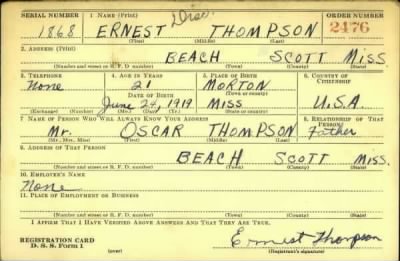 SERIAL NUMBER 1. NAME (Print) ORDER NUMBER
1868 ERNEST THOMPSON 2476
(First) (Middle) (Last)
2. ADDRESS (Print)
BEACH SCOTT MISS
(Number and street or R. F. D. number) (Town) (County) (State)
3. TELEPHONE 4. AGE IN YEARS 5. PLACE OF BIRTH 6. COUNTRY OF CITIZENSHIP
None 21 MORTON
DATE OF BIRTH (Town or county)
June 24, 1919 MISS U.S.A.
(Exchange) (Number) (Mo.) (Day) (Yr.) (State or country)
7. NAME OF PERSON WHO WILL ALWAYS KNOW YOUR ADDRESS 8. RELATIONSHIP OF THAT PERSON
Mr. OSCAR THOMPSON Father
(Mr., Mrs., Miss) (First) (Middle) (Last)
9. ADDRESS OF THAT PERSON
BEACH SCOTT MISS.
(Number and street or R. F. D. number) (Town) (County) (State)
10. EMPLOYER'S NAME
None
11. PLACE OF EMPLOYMENT OR BUSINESS
(Number and street or R. F. D. number) (Town) (County) (State)
I AFFIRM THAT I HAVE VERIFIED ABOVE ANSWERS AND THAT THEY ARE TRUE.
REGISTRATION CARD Ernest Thompson
D. S. S. Form 1 (Registrant's signature)
(over)